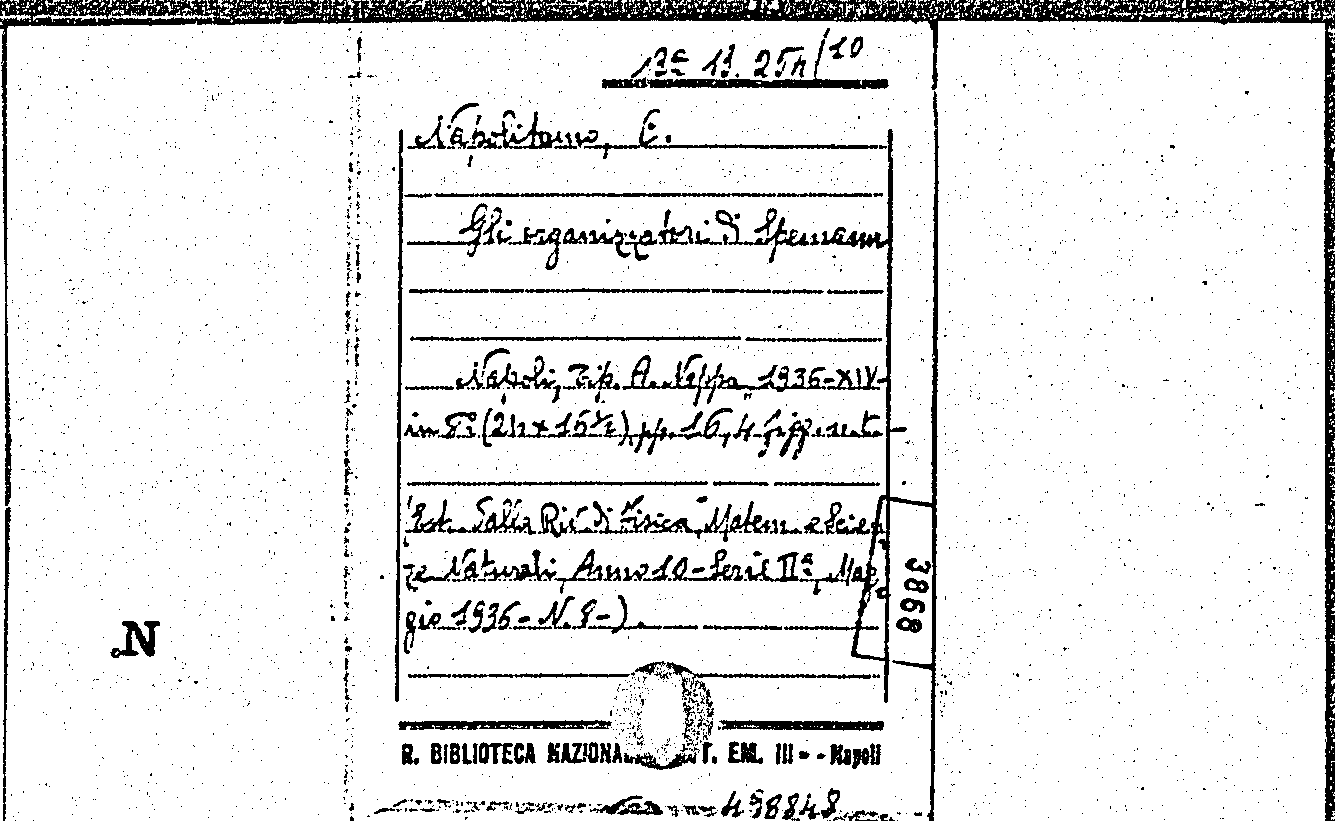 13ª 13. 25h/10
Napolitano, E.
Gli organizzatori di Spemann
Napoli, Tip. A. Neppa, 1936-XIV-
in 8º (24 x 15½), pp. 16, 4 figg. n.t. -
(Est. dalla Riv. di Fisica, Matem. e Scien
ze Naturali, Anno 10 - Serie IIª, Mag
gio 1936 - N. 8 -).
3868
N.
R. BIBLIOTECA NAZIONA T. EM. III - - Napoli
498848